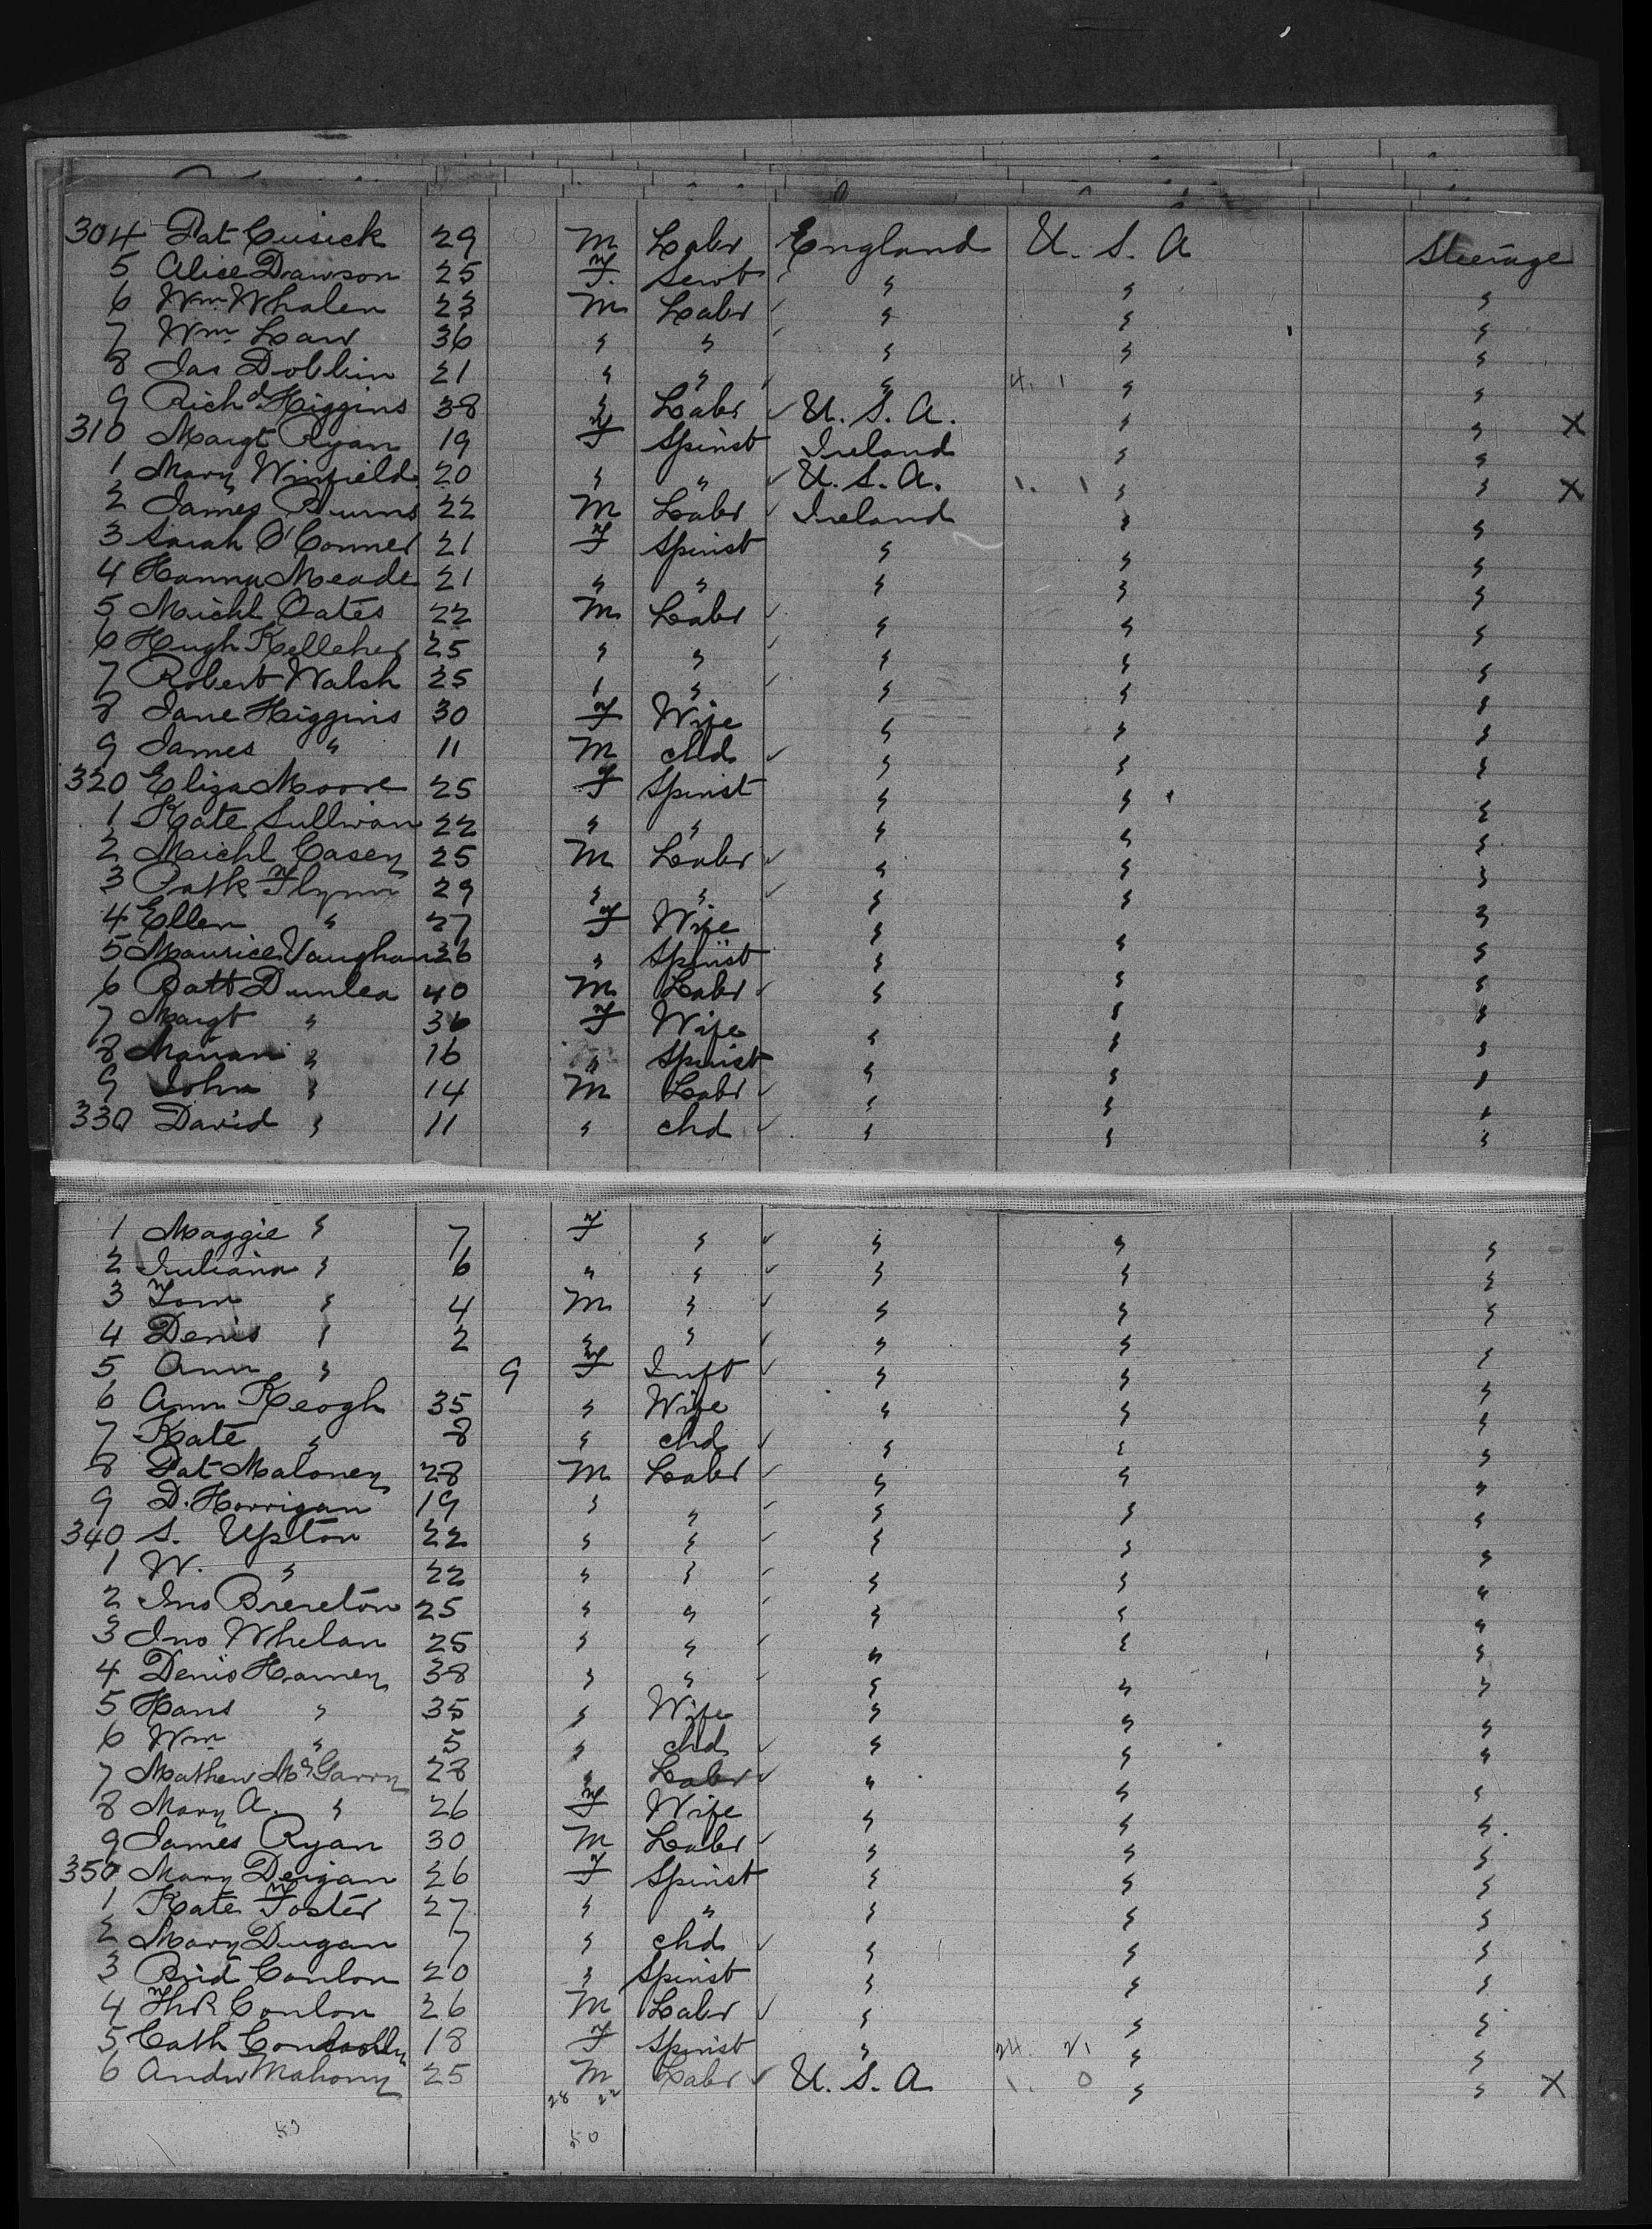 304 Pat Cusick 29 M Labr England U. S. A Steerage
5 Alice Dawson 25 F. Servt " " "
6 Wm Whalen 23 M Labr " " "
7 Wm Law 36 " " " " "
8 Jas Dobbin 21 " " " 4. 1 " "
9 Richd Higgins 38 " Labr U. S. A. " " X
310 Margt Ryan 19 F Spinst Ireland " "
1 Mary Winfield 20 " " U. S. A. 1. 1 " " X
2 James Burns 22 M Labr Ireland " "
3 Sarah O'Conner 21 F Spinst " " "
4 Hanna Meade 21 " " " " "
5 Michl Oates 22 M Labr " " "
6 Hugh Kelleher 25 " " " " "
7 Robert Walsh 25 " " " " "
8 Jane Higgins 30 F Wife " " "
9 James " 11 M chd " " "
320 Eliza Moore 25 F Spinst " " "
1 Kate Sullivan 22 " " " " "
2 Michl Casey 25 M Labr " " "
3 Patk Flynn 29 " " " " "
4 Ellen " 27 F Wife " " "
5 Maurice Vaughan 36 " Spinst " " "
6 Batt Dunlea 40 M Labr " " "
7 Margt " 36 F Wife " " "
8 Marian " 16 " Spinst " " "
9 John " 14 M Labr " " "
330 David " 11 " chd " " "
1 Maggie " 7 F " " " "
2 Juliana " 6 " " " " "
3 Tom " 4 M " " " "
4 Denis " 2 " " " " "
5 Ann " 9 F Inft " " "
6 Ann Keogh 35 " Wife " " "
7 Kate " 8 " chd " " "
8 Pat Maloney 28 M Labr " " "
9 D. Horrigan 19 " " " " "
340 S. Upton 22 " " " " "
1 W. " 22 " " " " "
2 Jno Brereton 25 " " " " "
3 Jno Whelan 25 " " " " "
4 Denis Harney 38 " " " " "
5 Hans " 35 " Wife " " "
6 Wm " 5 " chd " " "
7 Mathew McGarry 28 " Labr " " "
8 Mary A. " 26 F Wife " " "
9 James Ryan 30 M Labr " " "
350 Mary Deigan 26 F Spinst " " "
1 Kate Foster 27 " " " " "
2 Mary Dugan 7 " chd " " "
3 Brid Conlon 20 " Spinst " " "
4 Conlon 26 M Labr " " "
5 Cath 18 F Spinst " 24. 21 " "
6 Andw Mahony 25 M Labr U. S. A 1. 0 " " X
28 22
50